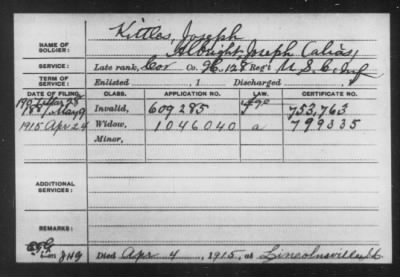 Kittles, Joseph
NAME OF SOLDIER: Albright, Joseph (alias)
SERVICE: Late rank, Cor Co. H, 128 Reg't U.S.C. Inf
TERM OF SERVICE: Enlisted , 1 Discharged , 1
DATE OF FILING. CLASS. APPLICATION NO. LAW. CERTIFICATE NO.
Mar 28
1887 May 9 Invalid, 609285 753,763
1915 Apr 24 Widow, 1046040 a 799335
Minor,
ADDITIONAL SERVICES:
REMARKS:
Died Apr 4, 1915, at Lincolnville S.C.